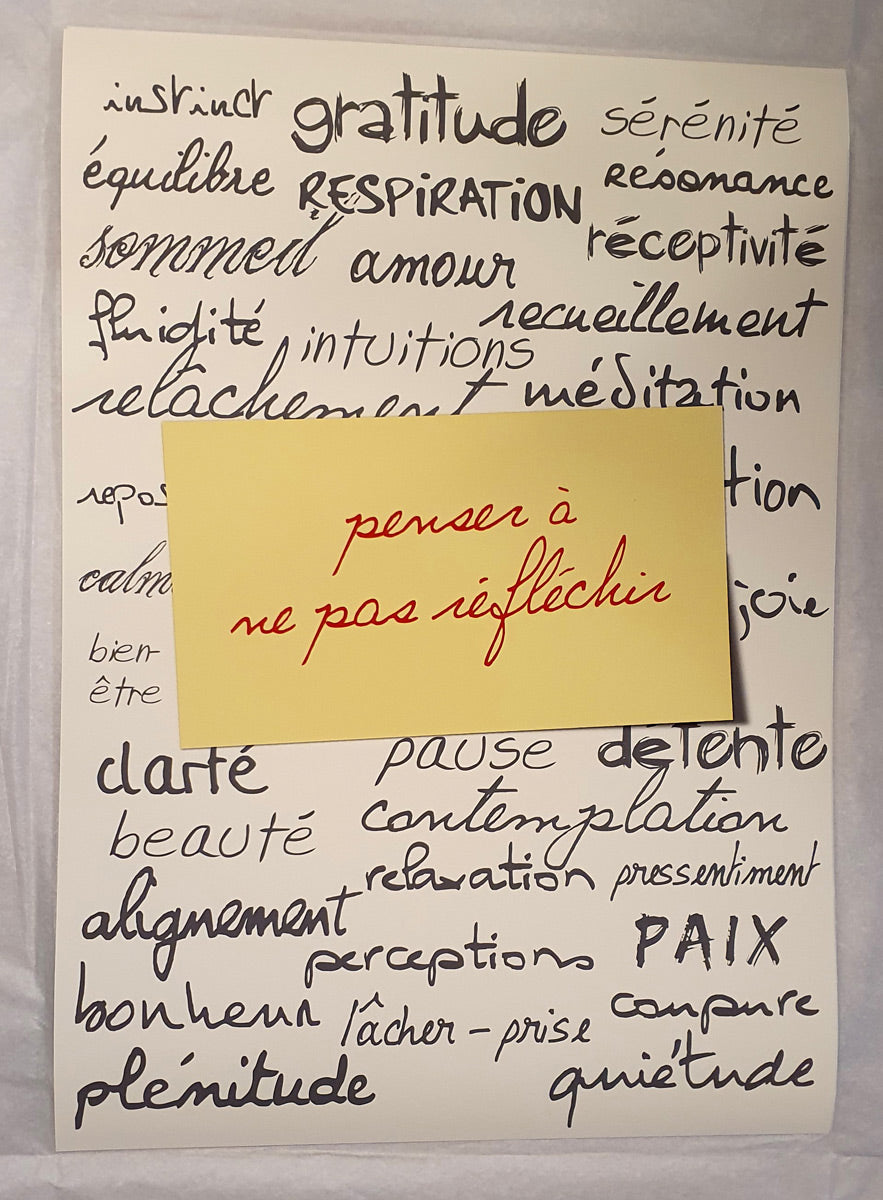 instinct gratitude sérénité
équilibre RESPIRATION Résonance
sommeil amour réceptivité
fluidité intuitions recueillement
relâchement méditation
repos tion
calm
penser à
ne pas réfléchir
joie
bien-
être
clarté pause détente
beauté contemplation
alignement relaxation pressentiment
perceptions PAIX
bonheur lâcher-prise coupure
plénitude quiétude